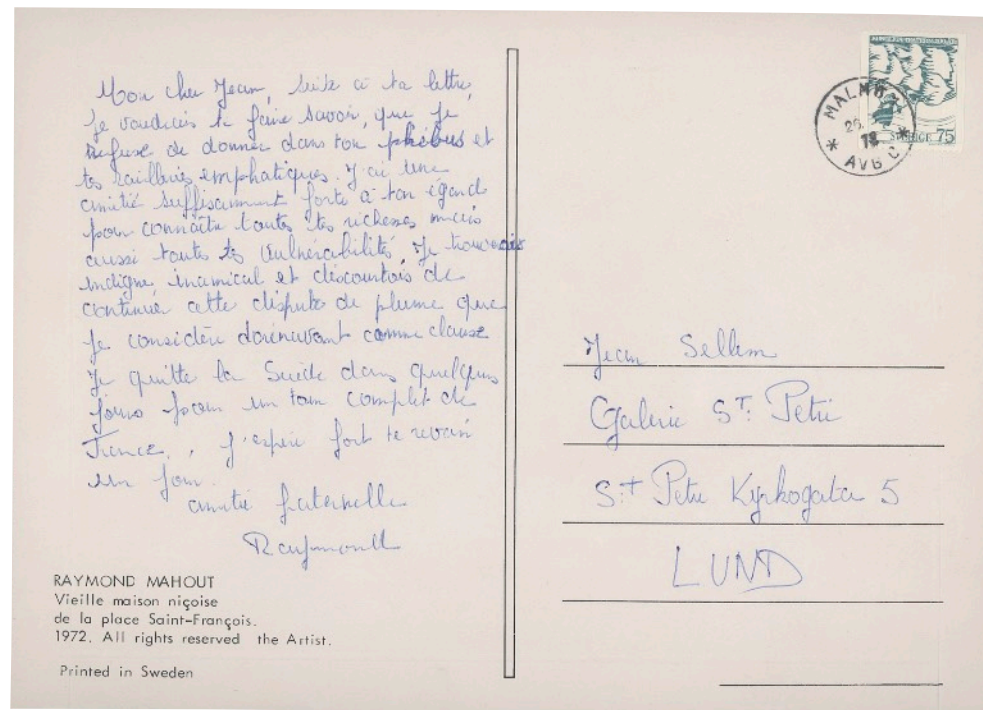 Mon cher Jean, suite à ta lettre,
je voudrais te faire savoir, que je
refuse de donner dans ton phébus et
tes railleries emphatiques. J'ai une
amitié suffisamment forte à ton égard
pour connaître toutes tes richesses mais
aussi toutes tes vulnérabilité. Je trouverais
indigne, inamical et discourtois de
continuer cette dispute de plume que
je considère dorénavant comme clause
Je quitte la Suède dans quelques
jours pour un tour complet de
France, j'espère fort te revoir
un jour.
amitié fraternelle
Raymond
RAYMOND MAHOUT
Vieille maison niçoise
de la place Saint-François.
1972. All rights reserved the Artist.
Printed in Sweden
SVERIGE 75
MALMÖ
AVG C
Jean Sellem
Galerie St. Petri
St Petri Kyrkogata 5
LUND